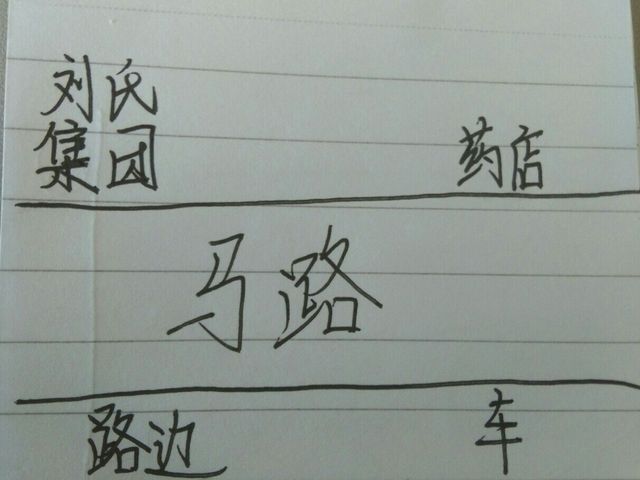 刘氏
集团
药店
马路
路边
车